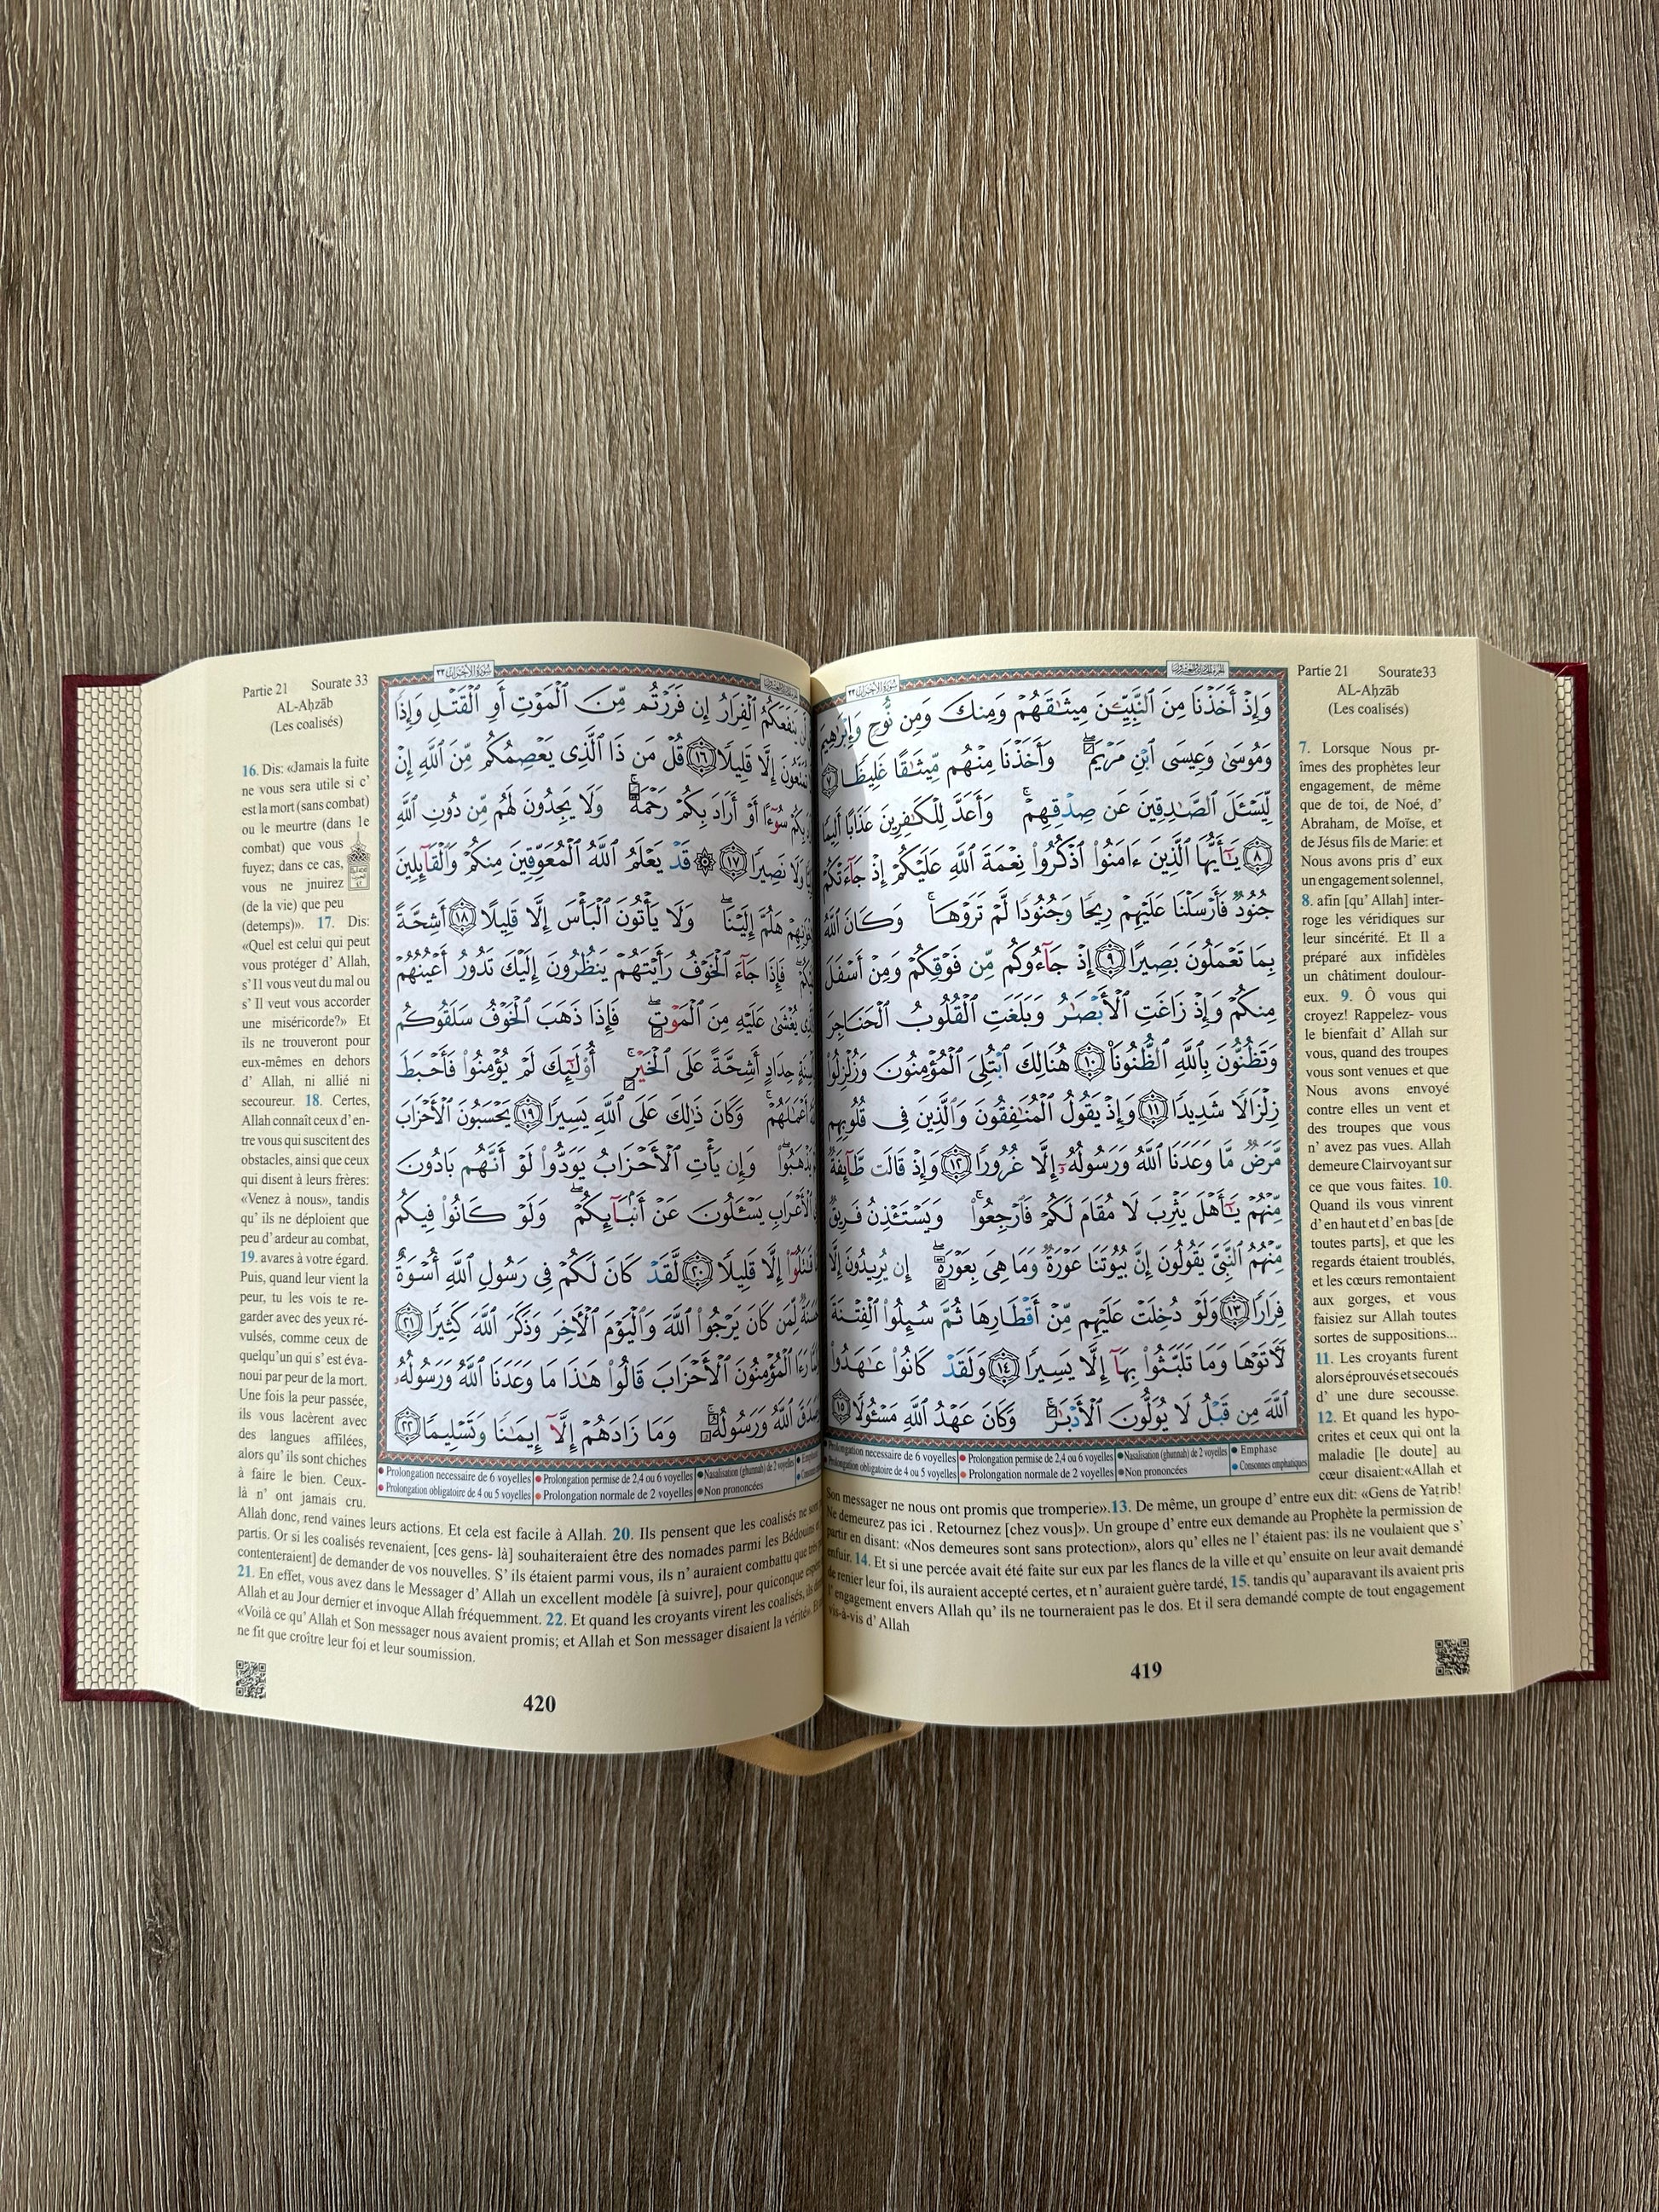 Partie 21 Sourate33
AL-Aḥzāb
(Les coalisés)
وَإِذْ أَخَذْنَا مِنَ ٱلنَّبِيِّـۧنَ مِيثَٰقَهُمْ وَمِنكَ وَمِن نُّوحٍ وَإِبْرَٰهِيمَ
وَمُوسَىٰ وَعِيسَى ٱبْنِ مَرْيَمَۖ وَأَخَذْنَا مِنْهُم مِّيثَٰقًا غَلِيظًا ٧
لِّيَسْـَٔلَ ٱلصَّٰدِقِينَ عَن صِدْقِهِمْۚ وَأَعَدَّ لِلْكَٰفِرِينَ عَذَابًا أَلِيمًا
٨ يَٰٓأَيُّهَا ٱلَّذِينَ ءَامَنُوا۟ ٱذْكُرُوا۟ نِعْمَةَ ٱللَّهِ عَلَيْكُمْ إِذْ جَآءَتْكُمْ
جُنُودٌ فَأَرْسَلْنَا عَلَيْهِمْ رِيحًا وَجُنُودًا لَّمْ تَرَوْهَاۚ وَكَانَ ٱللَّهُ
بِمَا تَعْمَلُونَ بَصِيرًا ٩ إِذْ جَآءُوكُم مِّن فَوْقِكُمْ وَمِنْ أَسْفَلَ
مِنكُمْ وَإِذْ زَاغَتِ ٱلْأَبْصَٰرُ وَبَلَغَتِ ٱلْقُلُوبُ ٱلْحَنَاجِرَ
وَتَظُنُّونَ بِٱللَّهِ ٱلظُّنُونَا۠ ١٠ هُنَالِكَ ٱبْتُلِىَ ٱلْمُؤْمِنُونَ وَزُلْزِلُوا۟
زِلْزَالًا شَدِيدًا ١١ وَإِذْ يَقُولُ ٱلْمُنَٰفِقُونَ وَٱلَّذِينَ فِى قُلُوبِهِم
مَّرَضٌ مَّا وَعَدَنَا ٱللَّهُ وَرَسُولُهُۥٓ إِلَّا غُرُورًا ١٢ وَإِذْ قَالَت طَّآئِفَةٌ
مِّنْهُمْ يَٰٓأَهْلَ يَثْرِبَ لَا مُقَامَ لَكُمْ فَٱرْجِعُوا۟ۚ وَيَسْتَـْٔذِنُ فَرِيقٌ
مِّنْهُمُ ٱلنَّبِىَّ يَقُولُونَ إِنَّ بُيُوتَنَا عَوْرَةٌ وَمَا هِىَ بِعَوْرَةٍۖ إِن يُرِيدُونَ إِلَّا
فِرَارًا ١٣ وَلَوْ دُخِلَتْ عَلَيْهِم مِّنْ أَقْطَارِهَا ثُمَّ سُئِلُوا۟ ٱلْفِتْنَةَ
لَـَٔاتَوْهَا وَمَا تَلَبَّثُوا۟ بِهَآ إِلَّا يَسِيرًا ١٤ وَلَقَدْ كَانُوا۟ عَٰهَدُوا۟
ٱللَّهَ مِن قَبْلُ لَا يُوَلُّونَ ٱلْأَدْبَٰرَۚ وَكَانَ عَهْدُ ٱللَّهِ مَسْـُٔولًا ١٥
Prolongation necessaire de 6 voyelles • Prolongation permise de 2,4 ou 6 voyelles • Nasalisation (ghunnah) de 2 voyelles • Emphase
Prolongation obligatoire de 4 ou 5 voyelles • Prolongation normale de 2 voyelles • Non prononcées • Consonnes emphatiques
7. Lorsque Nous pr-
îmes des prophètes leur
engagement, de même
que de toi, de Noé, d'
Abraham, de Moïse, et
de Jésus fils de Marie: et
Nous avons pris d' eux
un engagement solennel,
8. afin [qu' Allah] inter-
roge les véridiques sur
leur sincérité. Et Il a
préparé aux infidèles
un châtiment doulour-
eux. 9. Ô vous qui
croyez! Rappelez- vous
le bienfait d' Allah sur
vous, quand des troupes
vous sont venues et que
Nous avons envoyé
contre elles un vent et
des troupes que vous
n' avez pas vues. Allah
demeure Clairvoyant sur
ce que vous faites. 10.
Quand ils vous vinrent
d' en haut et d' en bas [de
toutes parts], et que les
regards étaient troublés,
et les cœurs remontaient
aux gorges, et vous
faisiez sur Allah toutes
sortes de suppositions...
11. Les croyants furent
alors éprouvés et secoués
d' une dure secousse.
12. Et quand les hypo-
crites et ceux qui ont la
maladie [le doute] au
cœur disaient:«Allah et
Son messager ne nous ont promis que tromperie».13. De même, un groupe d' entre eux dit: «Gens de Yaṯrib!
Ne demeurez pas ici . Retournez [chez vous]». Un groupe d' entre eux demande au Prophète la permission de
partir en disant: «Nos demeures sont sans protection», alors qu' elles ne l' étaient pas: ils ne voulaient que s'
enfuir. 14. Et si une percée avait été faite sur eux par les flancs de la ville et qu' ensuite on leur avait demandé
de renier leur foi, ils auraient accepté certes, et n' auraient guère tardé, 15. tandis qu' auparavant ils avaient pris
l' engagement envers Allah qu' ils ne tourneraient pas le dos. Et il sera demandé compte de tout engagement
vis-à-vis d' Allah
419
Partie 21 Sourate 33
AL-Aḥzāb
(Les coalisés)
سُورَةُ الأَحْزَابِ ٣٣
يَنفَعَكُمُ ٱلْفِرَارُ إِن فَرَرْتُم مِّنَ ٱلْمَوْتِ أَوِ ٱلْقَتْلِ وَإِذًا
إِلَّا قَلِيلًا ١٦ قُلْ مَن ذَا ٱلَّذِى يَعْصِمُكُم مِّنَ ٱللَّهِ إِنْ
سُوٓءًا أَوْ أَرَادَ بِكُمْ رَحْمَةًۚ وَلَا يَجِدُونَ لَهُم مِّن دُونِ ٱللَّهِ
وَلَا نَصِيرًا ١٧ ۞ قَدْ يَعْلَمُ ٱللَّهُ ٱلْمُعَوِّقِينَ مِنكُمْ وَٱلْقَآئِلِينَ
هَلُمَّ إِلَيْنَاۖ وَلَا يَأْتُونَ ٱلْبَأْسَ إِلَّا قَلِيلًا ١٨ أَشِحَّةً
فَإِذَا جَآءَ ٱلْخَوْفُ رَأَيْتَهُمْ يَنظُرُونَ إِلَيْكَ تَدُورُ أَعْيُنُهُمْ
يُغْشَىٰ عَلَيْهِ مِنَ ٱلْمَوْتِۖ فَإِذَا ذَهَبَ ٱلْخَوْفُ سَلَقُوكُم
حِدَادٍ أَشِحَّةً عَلَى ٱلْخَيْرِۚ أُو۟لَٰٓئِكَ لَمْ يُؤْمِنُوا۟ فَأَحْبَطَ
أَعْمَٰلَهُمْۚ وَكَانَ ذَٰلِكَ عَلَى ٱللَّهِ يَسِيرًا ١٩ يَحْسَبُونَ ٱلْأَحْزَابَ
يَذْهَبُوا۟ۖ وَإِن يَأْتِ ٱلْأَحْزَابُ يَوَدُّوا۟ لَوْ أَنَّهُم بَادُونَ
ٱلْأَعْرَابِ يَسْـَٔلُونَ عَنْ أَنۢبَآئِكُمْۖ وَلَوْ كَانُوا۟ فِيكُم
قَٰتَلُوٓا۟ إِلَّا قَلِيلًا ٢٠ لَّقَدْ كَانَ لَكُمْ فِى رَسُولِ ٱللَّهِ أُسْوَةٌ
حَسَنَةٌ لِّمَن كَانَ يَرْجُوا۟ ٱللَّهَ وَٱلْيَوْمَ ٱلْـَٔاخِرَ وَذَكَرَ ٱللَّهَ كَثِيرًا ٢١
رَءَا ٱلْمُؤْمِنُونَ ٱلْأَحْزَابَ قَالُوا۟ هَٰذَا مَا وَعَدَنَا ٱللَّهُ وَرَسُولُهُۥ
وَصَدَقَ ٱللَّهُ وَرَسُولُهُۥۚ وَمَا زَادَهُمْ إِلَّآ إِيمَٰنًا وَتَسْلِيمًا ٢٢
• Prolongation necessaire de 6 voyelles • Prolongation permise de 2,4 ou 6 voyelles • Nasalisation (ghunnah) de 2 voyelles
• Prolongation obligatoire de 4 ou 5 voyelles • Prolongation normale de 2 voyelles • Non prononcées
16. Dis: «Jamais la fuite
ne vous sera utile si c'
est la mort (sans combat)
ou le meurtre (dans le
combat) que vous
fuyez; dans ce cas,
vous ne jnuirez
(de la vie) que peu
(detemps)». 17. Dis:
«Quel est celui qui peut
vous protéger d' Allah,
s' Il vous veut du mal ou
s' Il veut vous accorder
une miséricorde?» Et
ils ne trouveront pour
eux-mêmes en dehors
d' Allah, ni allié ni
secoureur. 18. Certes,
Allah connaît ceux d' en-
tre vous qui suscitent des
obstacles, ainsi que ceux
qui disent à leurs frères:
«Venez à nous», tandis
qu' ils ne déploient que
peu d' ardeur au combat,
19. avares à votre égard.
Puis, quand leur vient la
peur, tu les vois te re-
garder avec des yeux ré-
vulsés, comme ceux de
quelqu'un qui s' est éva-
noui par peur de la mort.
Une fois la peur passée,
ils vous lacèrent avec
des langues affilées,
alors qu' ils sont chiches
à faire le bien. Ceux-
là n' ont jamais cru.
Allah donc, rend vaines leurs actions. Et cela est facile à Allah. 20. Ils pensent que les coalisés ne sont
partis. Or si les coalisés revenaient, [ces gens- là] souhaiteraient être des nomades parmi les Bédouins
contenteraient] de demander de vos nouvelles. S' ils étaient parmi vous, ils n' auraient combattu que très
21. En effet, vous avez dans le Messager d' Allah un excellent modèle [à suivre], pour quiconque
Allah et au Jour dernier et invoque Allah fréquemment. 22. Et quand les croyants virent les coalisés, ils
«Voilà ce qu' Allah et Son messager nous avaient promis; et Allah et Son messager disaient la vérité».
ne fit que croître leur foi et leur soumission.
420